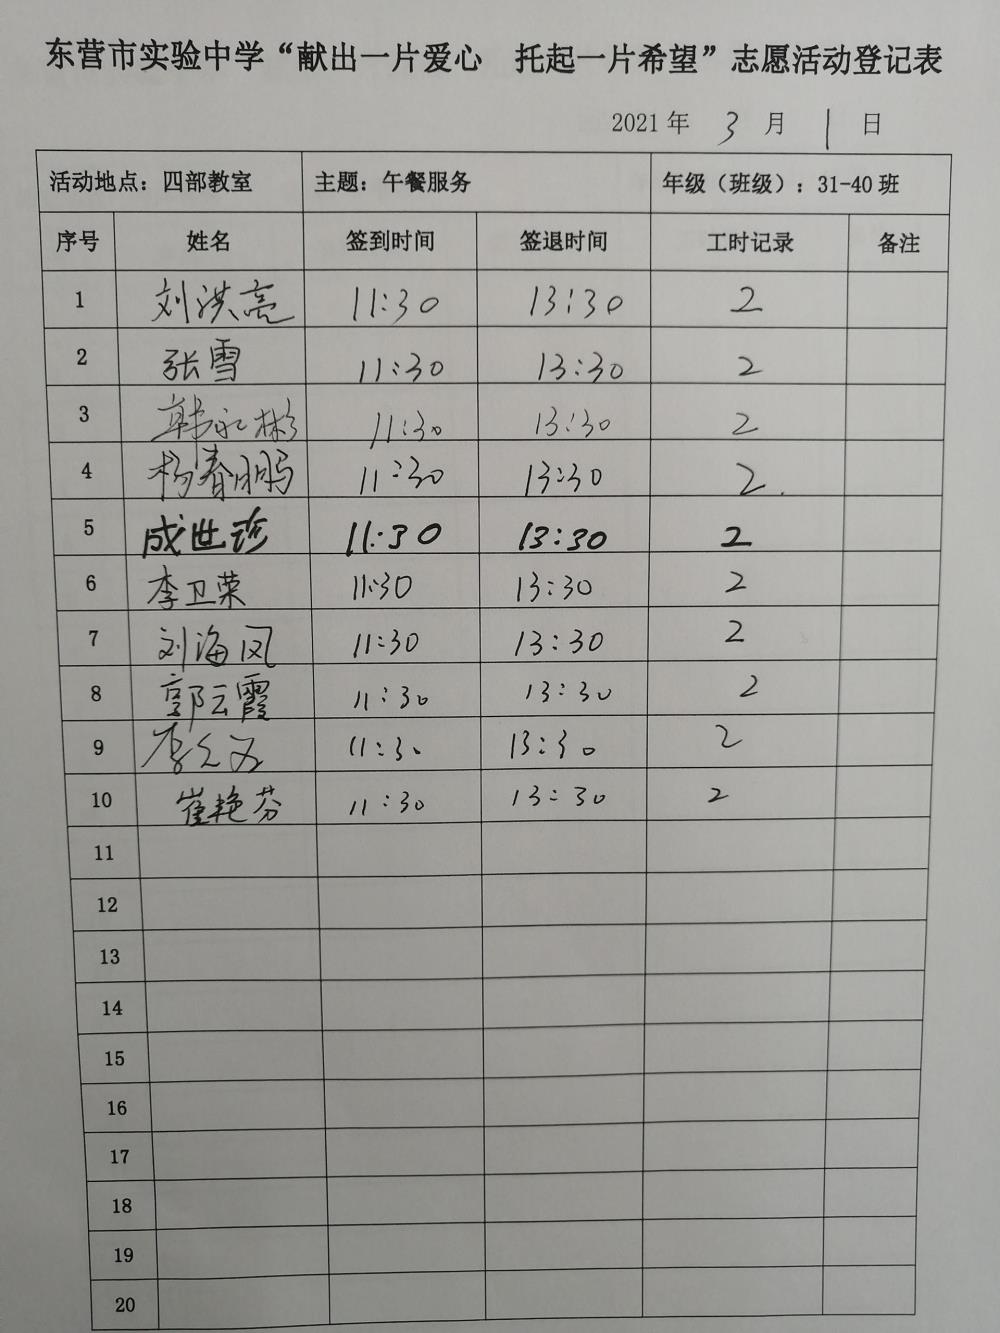 东营市实验中学“献出一片爱心 托起一片希望”志愿活动登记表
2021 年 3 月 1 日
活动地点：四部教室 主题：午餐服务 年级（班级）：31-40 班
序号 姓名 签到时间 签退时间 工时记录 备注
1 刘洪亮 11:30 13:30 2
2 张雪 11:30 13:30 2
3 韩永彬 11:30 13:30 2
4 杨春鹏 11:30 13:30 2.
5 成世珍 11:30 13:30 2
6 李卫荣 11:30 13:30 2
7 刘海凤 11:30 13:30 2
8 郭云霞 11:30 13:30 2
9 李 11:30 13:30 2
10 崔艳芬 11:30 13:30 2
11
12
13
14
15
16
17
18
19
20